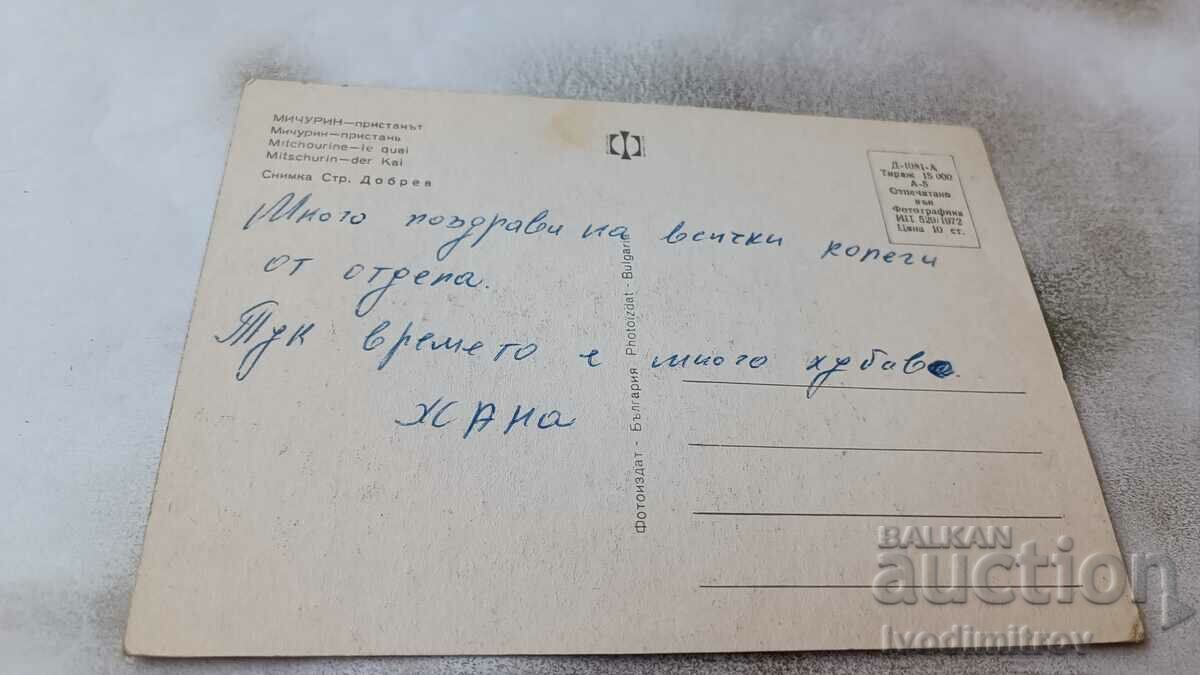 МИЧУРИН—пристанът
Мичурин—пристань
Mitchourine—le quai
Mitschurin—der Kai
Снимка Стр. Добрев
Д-1081-А
Тираж 15 000
А-5
Отпечатано
във
Фотографика
ИП 529/1972
Цена 10 ст.
Много поздрави на всички колеги
от отдела.
Тук времето е много хубаво.
ЖАНа
Фотоиздат - България Photoizdat - Bulgarie
BALKAN
auction
Ivodimitrov